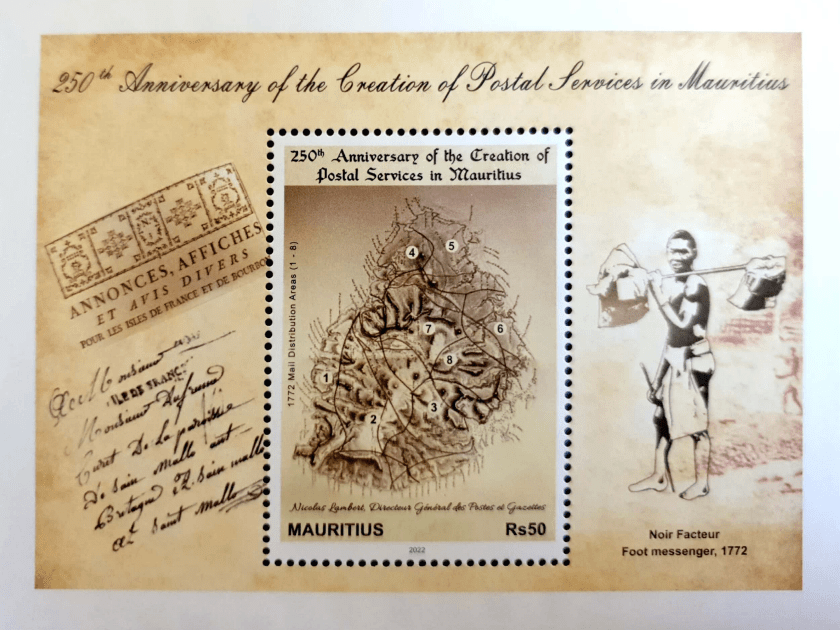 250th Anniversary of the Creation of Postal Services in Mauritius
250th Anniversary of the Creation of
Postal Services in Mauritius
ANNONCES, AFFICHES
ET AVIS DIVERS
POUR LES ISLES DE FRANCE ET DE BOURBO
A Monsieur
ILE DE FRANC
Monsieur Dufresne
Curet De La paroisse
De sain mallo
Bretagne sain mallo
saint mallo
1772 Mail Distribution Areas (1 - 8)
4
5
6
7
8
1
2
3
Nicolas Lambert, Directeur Général des Postes et Gazettes
MAURITIUS Rs50
2022
Noir Facteur
Foot messenger, 1772